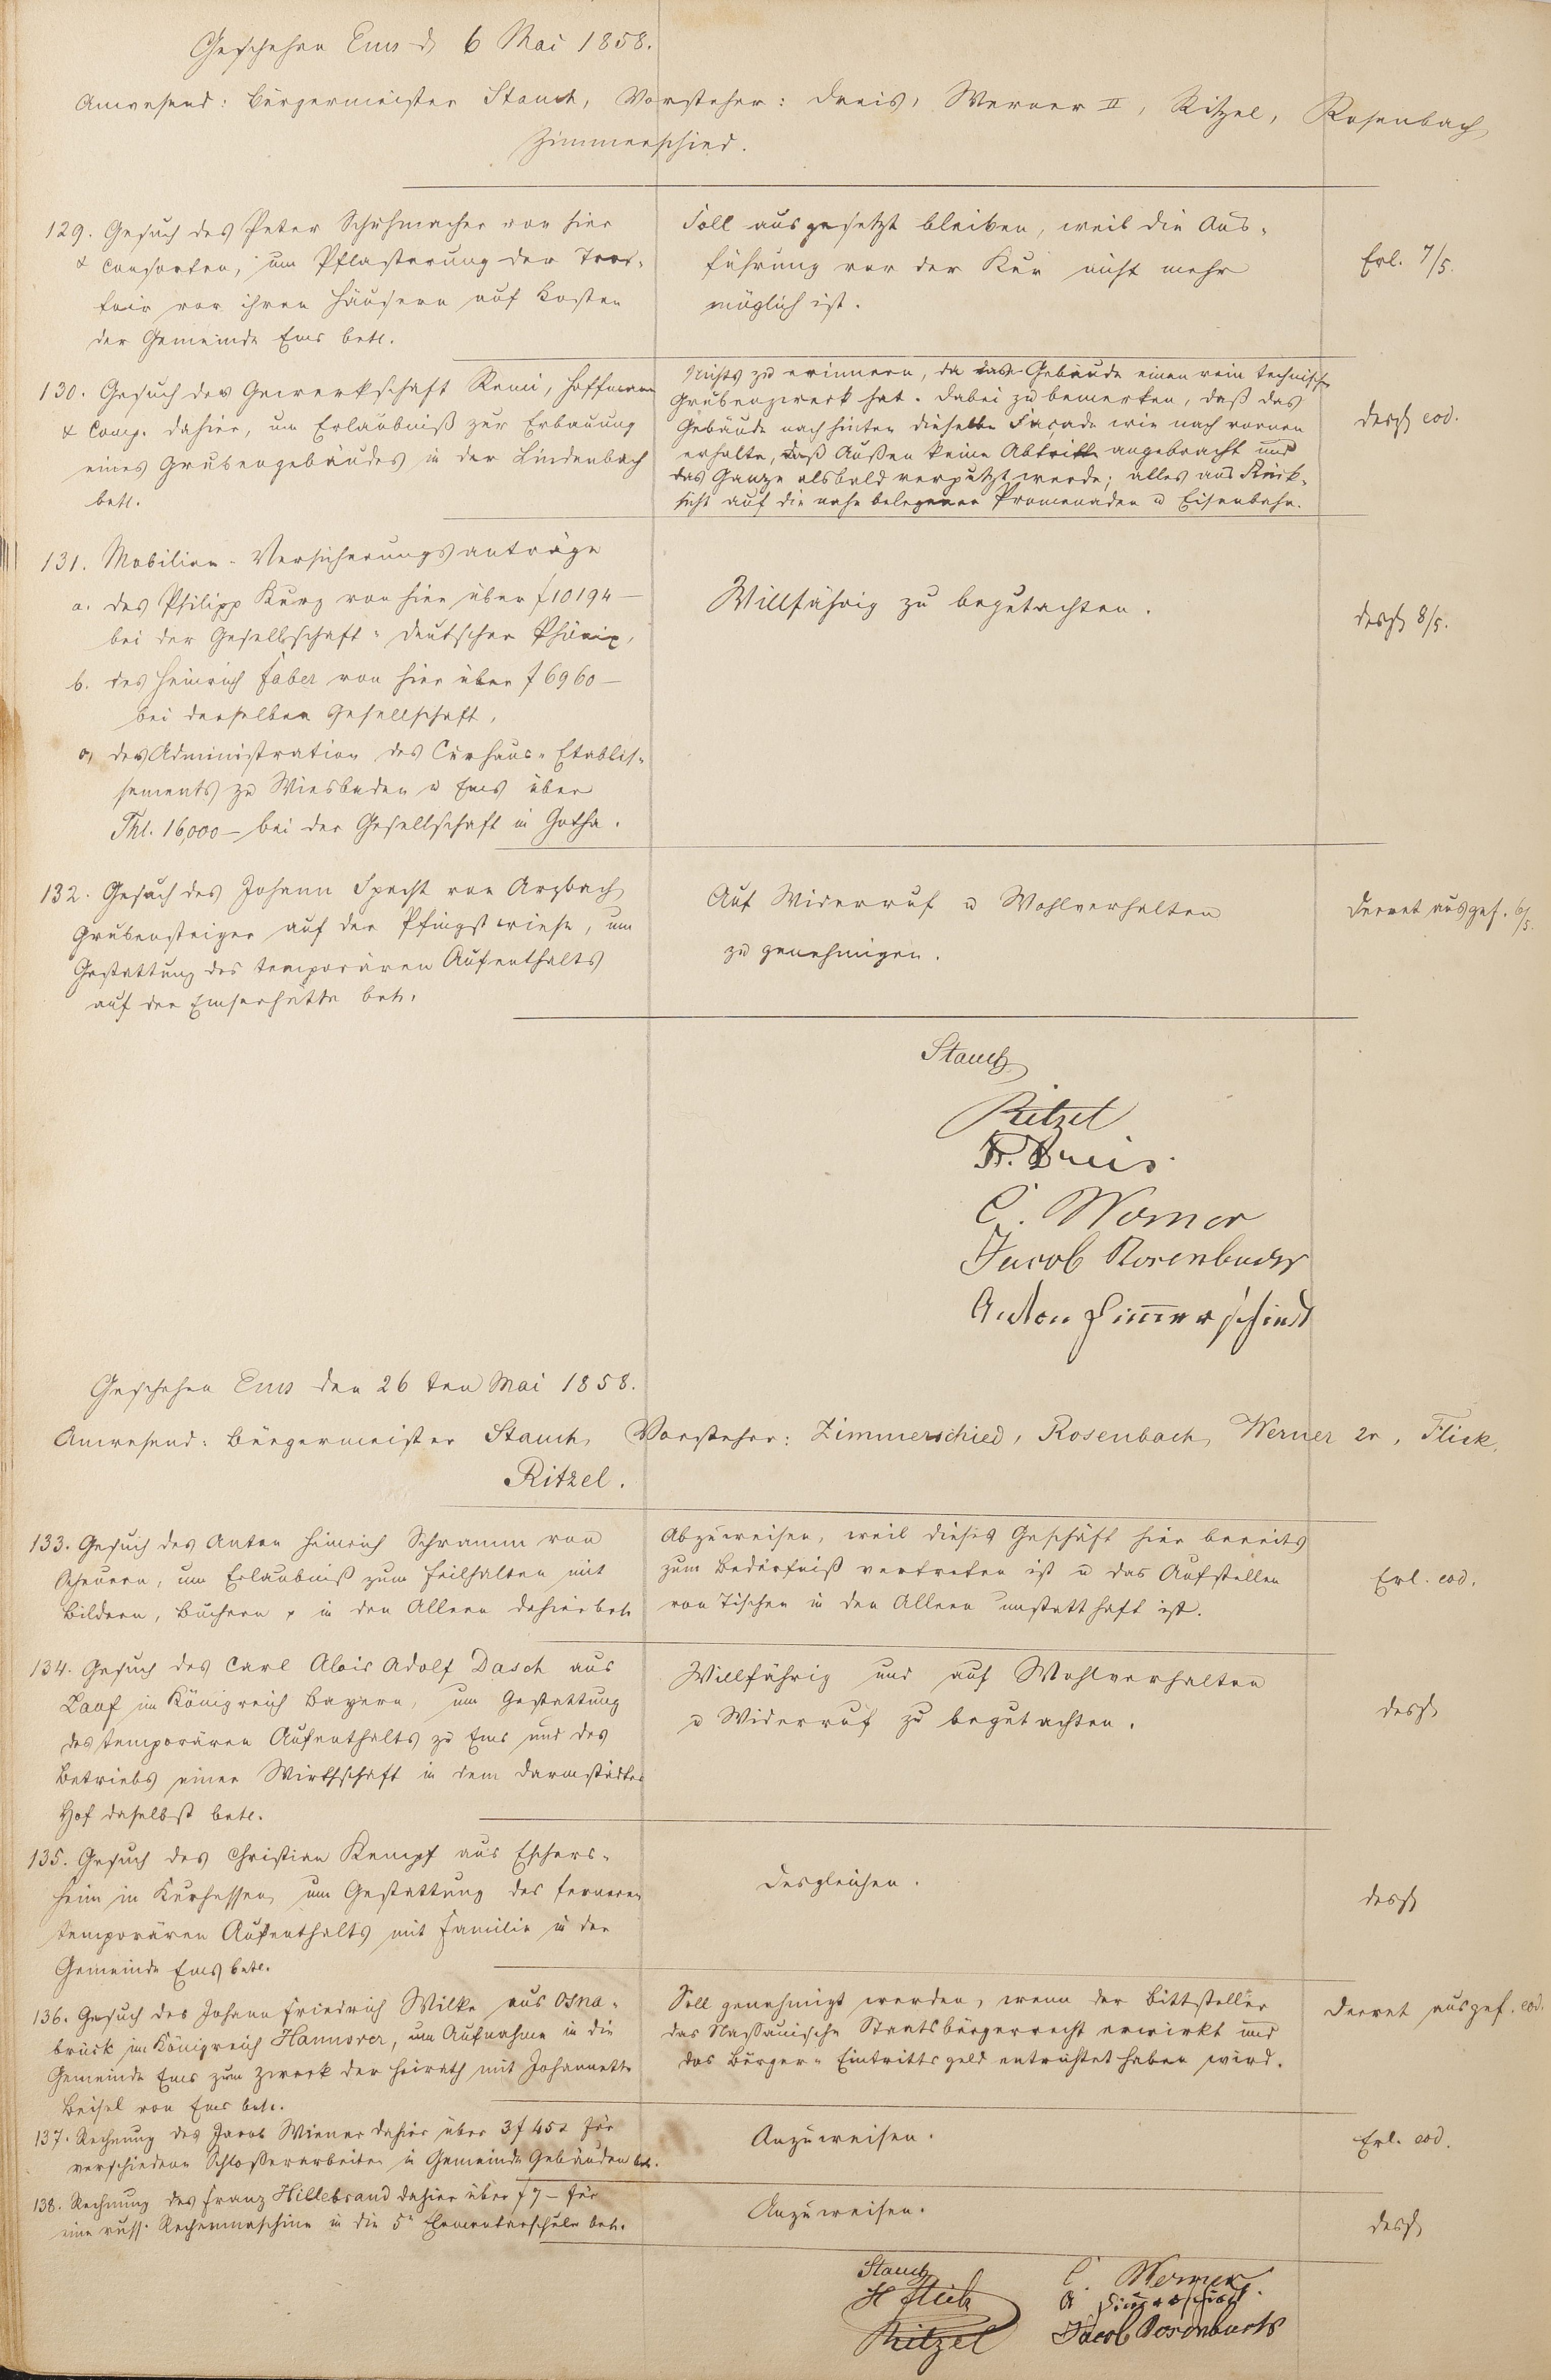 Geschehen Ems d 6 Mai 1858.
Anwesend: Bürgermeister Stauch, Vorsteher: Dreis, Werner II, Ritzel, Rosenbach,
Zimmerschied.
129. Gesuch des Peter Schuhmacher von hier
& Consorten, um Pflasterung der Trot-
toir vor ihren Häusern auf Kosten
der Gemeinde Ems betr.
Soll ausgesetzt bleiben, weil die Aus-
führung vor der Kur nicht mehr
möglich ist.
Erl. 7/5.
130. Gesuch der Gewerkschaft Remi, Hoffmann
& Comp. dahier, um Erlaubniß zur Erbauung
eines Grubengebäudes in der Lindenbach
betr.
Nichts zu erinnern, da das Gebäude einen rein technischen
Grubenzweck hat. Dabei zu bemerken, daß das
Gebäude nach hinten dieselbe Façade wie nach vornen
erhalte, daß Außen keine Abtritte angebracht und
das Ganze alsbald verputzt werde; alles aus Rück-
sicht auf die nahe belegenen Promenaden u Eisenbahn.
desgl eod.
131. Mobilien-Versicherungsanträge
a. des Philipp Kurz von hier über f 10194 —
bei der Gesellschaft: Deutscher Phönix,
b. des Heinrich Faber von hier über f 6960 —
bei derselben Gesellschaft,
c, der Administration des Curhaus-Etablis-
sements zu Wiesbaden u Ems über
Thl. 16,000 — bei der Gesellschaft in Gotha.
Willfährig zu begutachten.
desgl 8/5.
132. Gesuch des Johann Specht von Arzbach
Grubensteiger auf der Pfingstwiese, um
Gestattung des temporären Aufenthalts
auf der Emserhütte betr.
Auf Widerruf u Wohlverhalten
zu genehmigen.
Decret ausgef. 6/5.
Stauch
Ritzel
Fr. Dreis.
C. Werner
Jacob Rosenbach
Anton Zimmerschied
Geschehen Ems den 26 ten Mai 1858.
Anwesend: Bürgermeister Stauch, Vorsteher: Zimmerschied, Rosenbach, Werner 2r, Flick,
Ritzel.
133. Gesuch des Anton Heinrich Schramm von
Scheuern, um Erlaubniß zum Feilhalten mit
Bildern, Büchern p in den Alleen dahier betr
Abzuweisen, weil dieses Geschäft hier bereits
zum Bedürfniß vertreten ist u das Aufstellen
von Tischen in den Alleen unstatthaft ist.
Erl. eod.
134. Gesuch des Carl Alois Adolf Dasch aus
Lauf im Königreich Bayern, um Gestattung
des temporären Aufenthalts zu Ems und des
Betriebs einer Wirthschaft in dem Darmstädter
Hof daselbst betr.
Willfährig und auf Wohlverhalten
u Widerruf zu begutachten.
desgl
135. Gesuch des Christian Kempf aus Eschers-
heim in Kurhessen, um Gestattung des ferneren
temporären Aufenthalts mit Familie in der
Gemeinde Ems betr.
Desgleichen.
desgl
136. Gesuch des Johann Friedrich Wilke aus Osna-
brück im Königreich Hannover, um Aufnahme in die
Gemeinde Ems zum Zweck der Heirath mit Johannette
Beisel von Ems betr.
Soll genehmigt werden, wenn der Bittsteller
das Nassauische Staatsbürgerrecht erwirkt und
das Bürger-Eintrittsgeld entrichtet haben wird.
Decret ausgef. eod.
137. Rechnung des Jacob Wiener dahier über 3 f 45 x für
verschiedene Schlosserarbeiten in Gemeinde Gebäuden betr.
Anzuweisen.
Erl. eod.
138. Rechnung des Franz Hillebrand dahier über f 7 — für
eine russ. Rechenmaschine in die 5e Elementarschule betr.
Anzuweisen.
desgl
Stauch
H Flick
Ritzel
C. Werner
A Zimmerschied.
Jacob Rosenbach